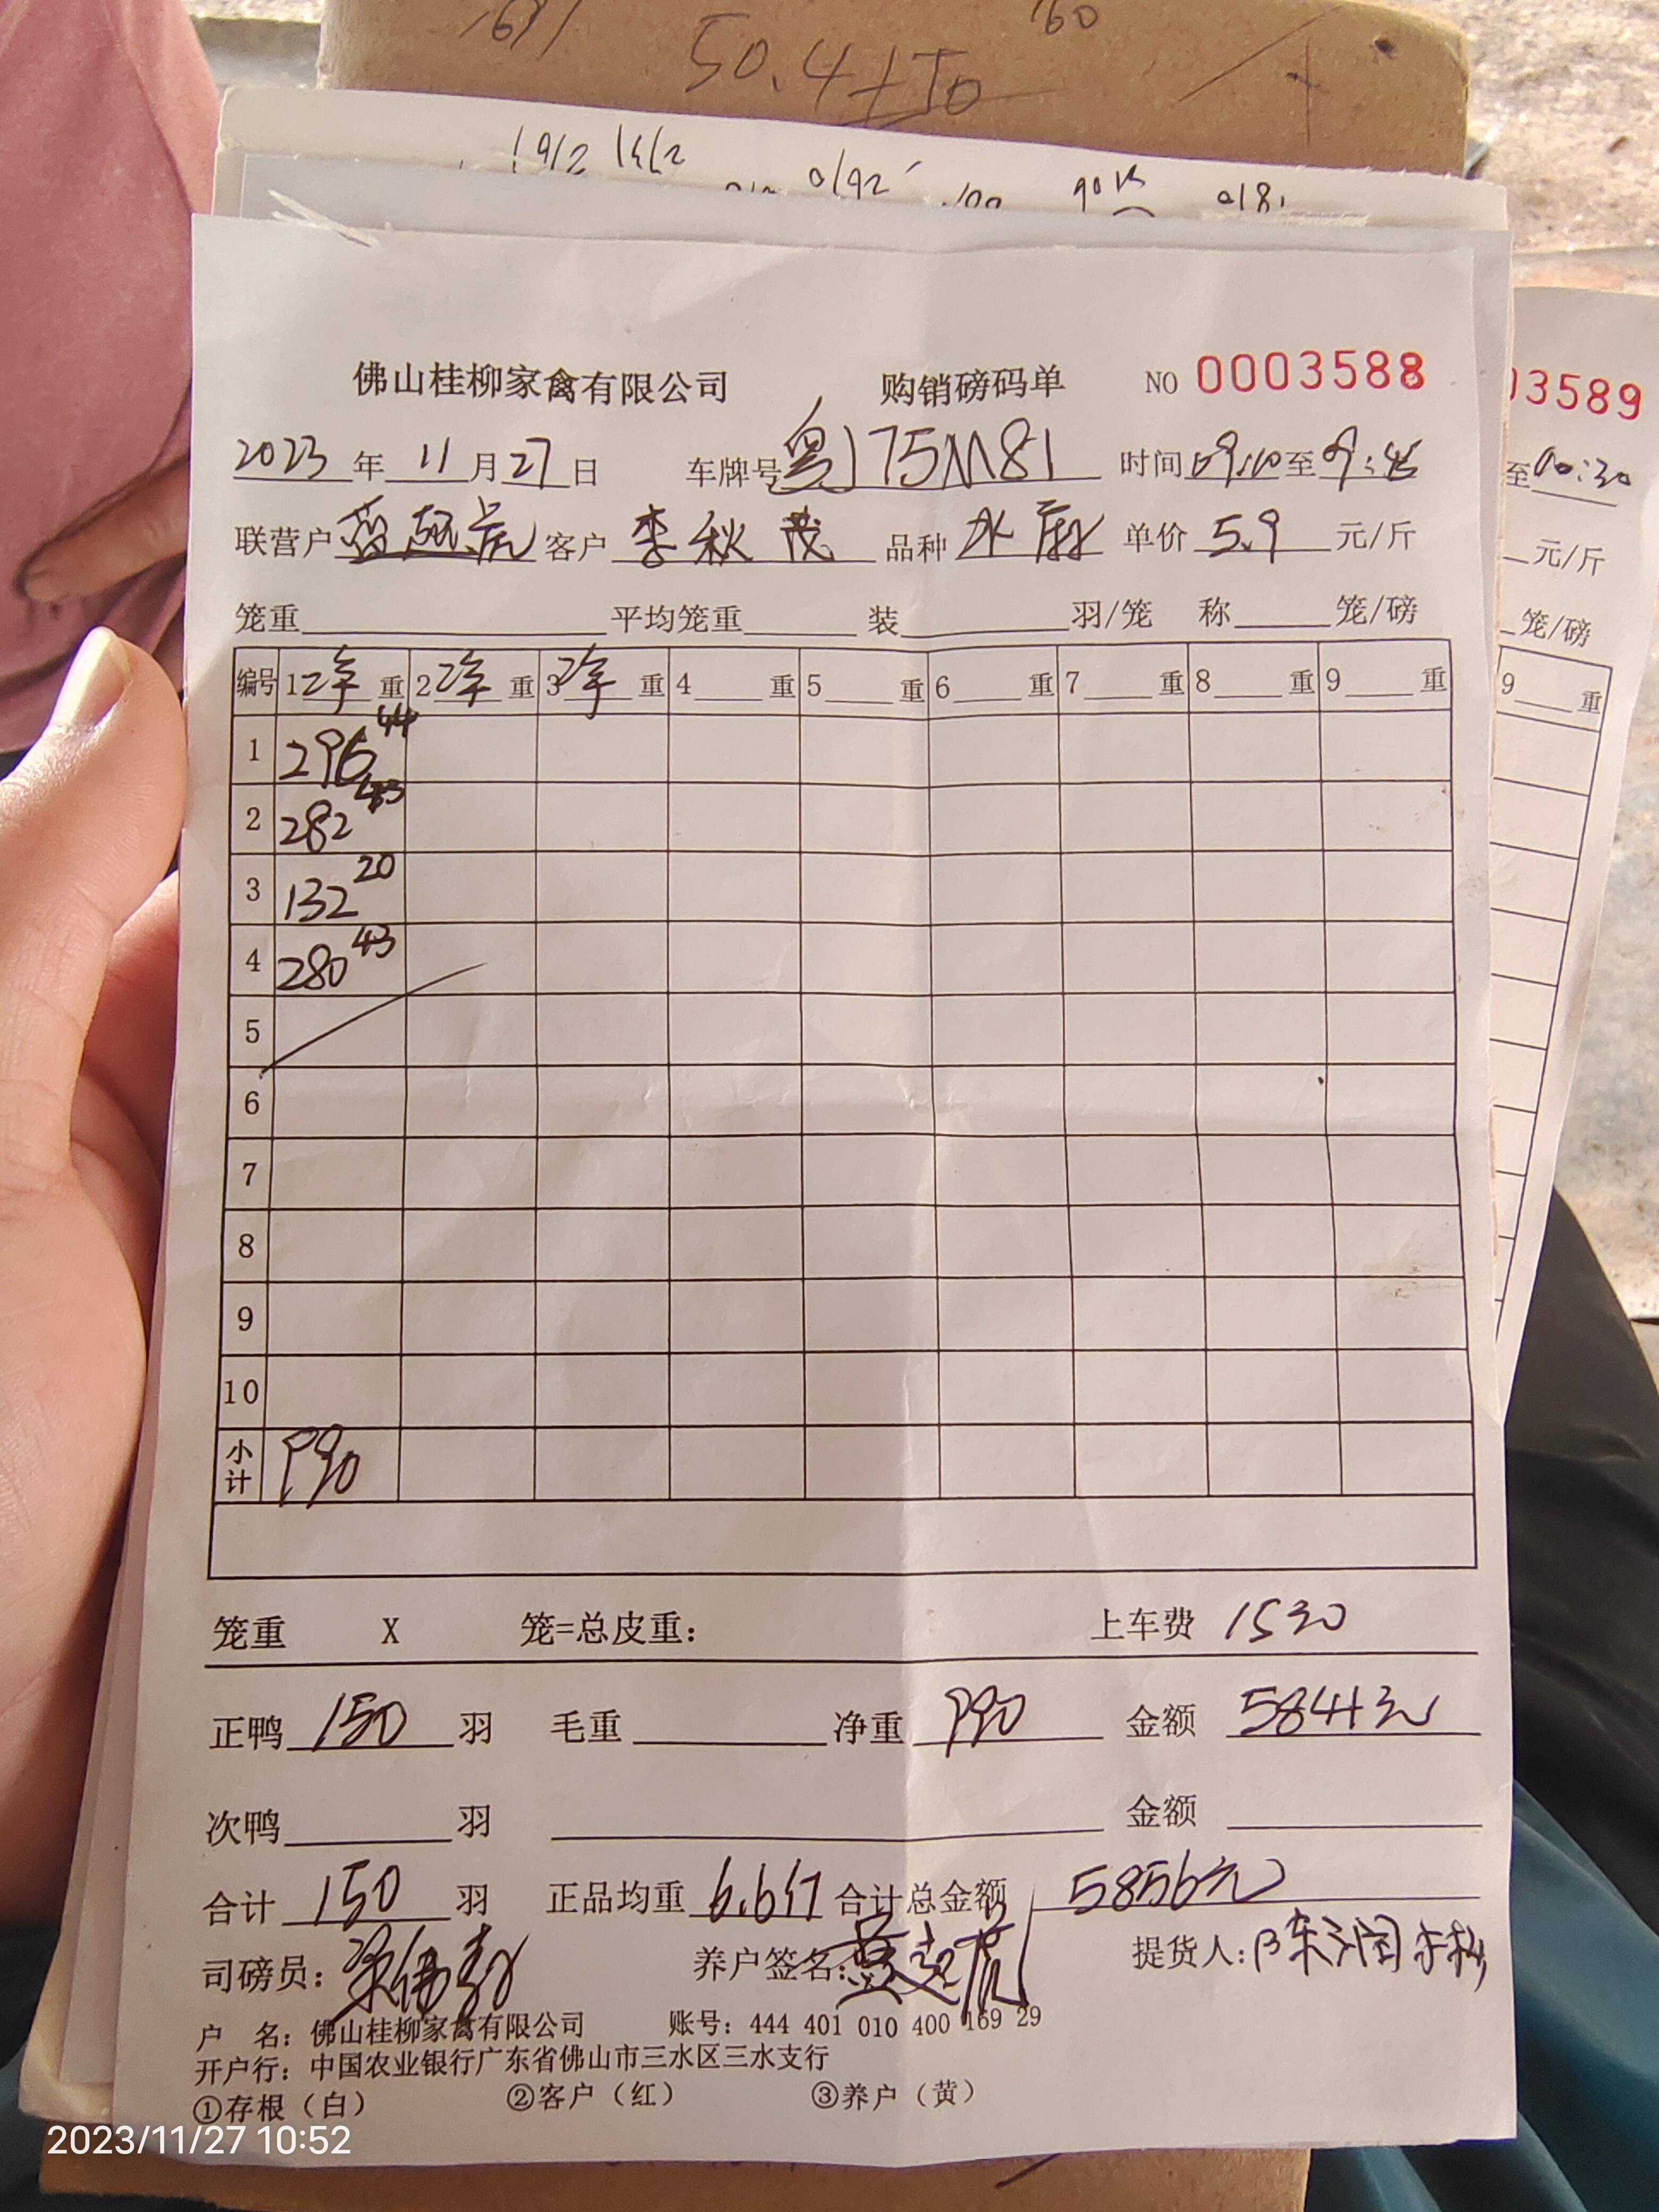 50.4
佛山桂柳家禽有限公司 购销磅码单 NO 0003588
03589
2023年11月27日 车牌号粤J75M81 时间09:10至9:45
至10:30
联营户 客户李秋茂 品种水麻 单价5.9元/斤
元/斤
笼重 平均笼重 装 羽/笼 称 笼/磅
笼/磅
编号 1净重 2净重 3净重 4重 5重 6重 7重 8重 9重
9重
1 296 44
2 282 43
3 132 20
4 280 43
5
6
7
8
9
10
小计 990
笼重 X 笼=总皮重: 上车费
正鸭150羽 毛重 净重990 金额5841元
次鸭 羽 金额
合计150羽 正品均重6.6斤 合计总金额5856元
司磅员: 养户签名: 提货人:
户 名: 佛山桂柳家禽有限公司 账号: 444 401 010 400 169 29
开户行: 中国农业银行广东省佛山市三水区三水支行
①存根（白） ②客户（红） ③养户（黄）
2023/11/27 10:52